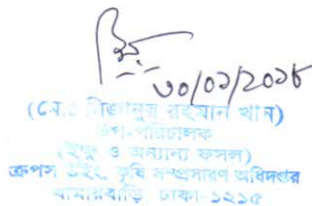 ৩০/০১/২০১৮
(মোঃ মিজানুর রহমান খান)
উপ-পরিচালক
(ইক্ষু ও অন্যান্য ফসল)
ক্রপস উইং, কৃষি সম্প্রসারণ অধিদপ্তর
খামারবাড়ি, ঢাকা-১২১৫